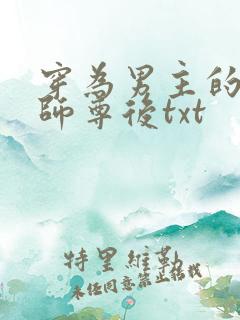 穿為男主的
師尊後txt
特里維勒
未经同意禁止转载